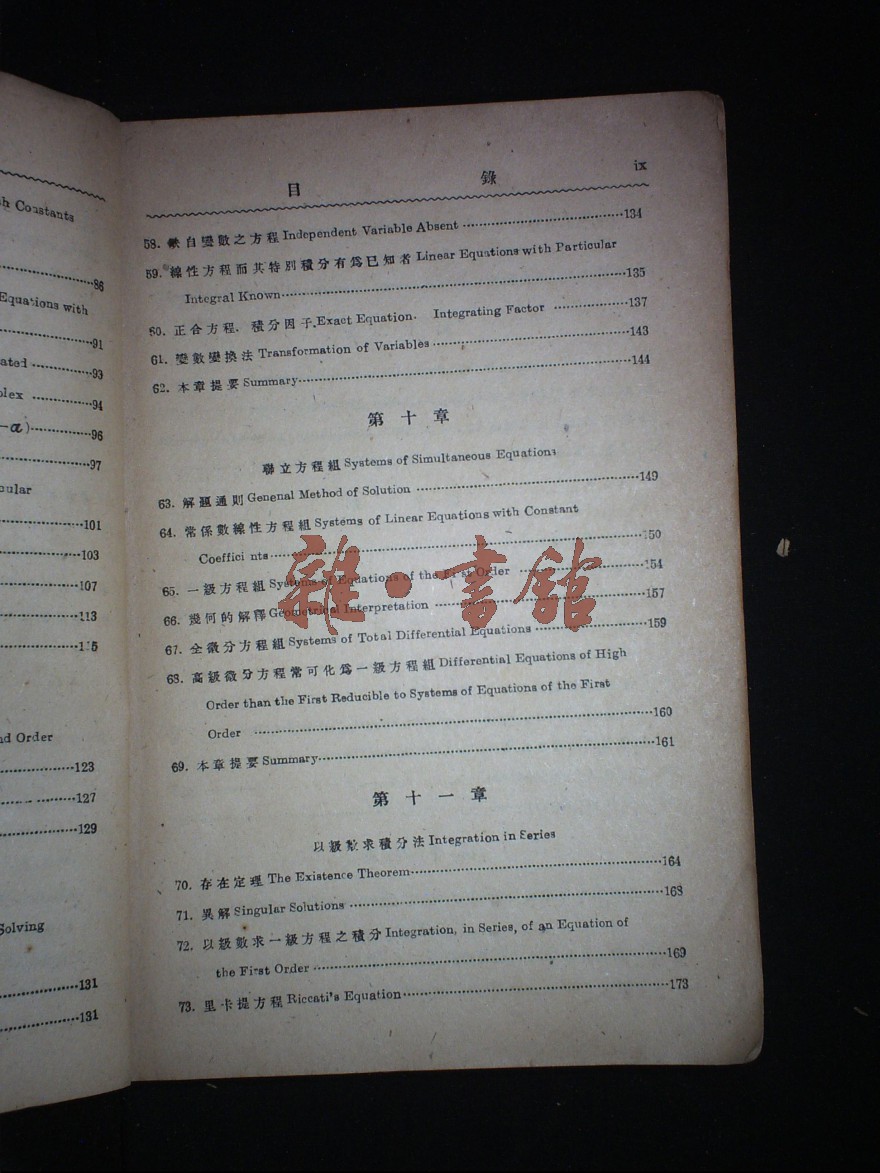 h Constants
86
Equations with
91
ated 93
plex 94
—a) 96
97
cular
101
103
107
113
115
nd Order
123
127
129
Solving
131
131
目 錄 ix
58. 缺自變數之方程 Independent Variable Absent 134
59. 線性方程而其特別積分有爲已知者 Linear Equations with Particular
Integral Known 135
60. 正合方程、積分因子 Exact Equation. Integrating Factor 137
61. 變數變換法 Transformation of Variables 143
62. 本章提要 Summary 144
第十章
聯立方程組 Systems of Simultaneous Equations
63. 解題通則 Genenal Method of Solution 149
64. 常係數線性方程組 Systems of Linear Equations with Constant
Coeffici nts 150
65. 一級方程組 Systems of Equations of the First Order 154
66. 幾何的解釋 Geometrical Interpretation 157
67. 全微分方程組 Systems of Total Differential Equations 159
68. 高級微分方程常可化爲一級方程組 Differential Equations of High
Order than the First Reducible to Systems of Equations of the First
Order 160
69. 本章提要 Summary 161
第十一章
以級數求積分法 Integration in Series
70. 存在定理 The Existence Theorem 164
71. 異解 Singular Solutions 168
72. 以級數求一級方程之積分 Integration, in Series, of an Equation of
the First Order 169
73. 里卡提方程 Riccati's Equation 173
雜·書館